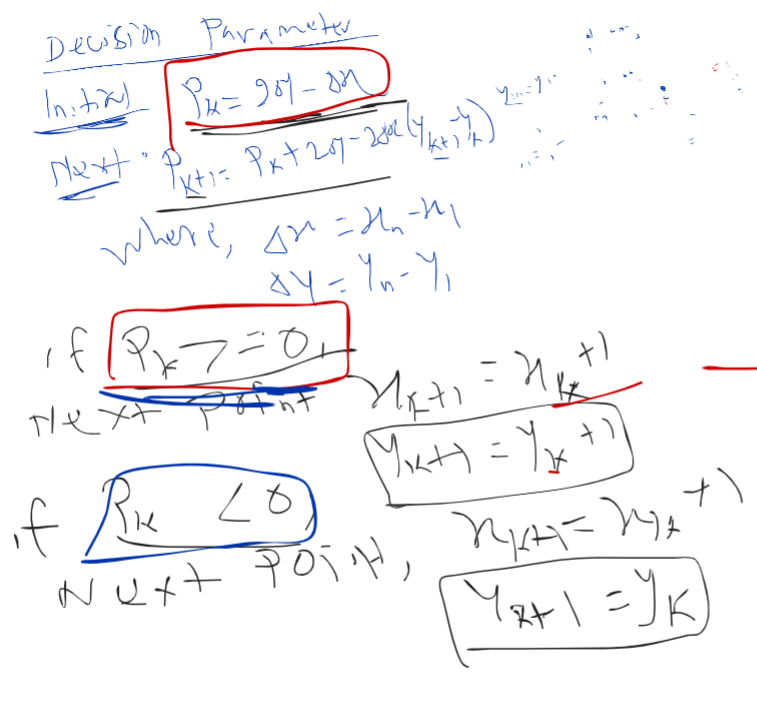 Decision Parameter
Initial Pk = 2Δy - Δx
Next Pk+1 = Pk + 2Δy - 2Δx(yk+1 - yk)
where, Δx = xn - x1
Δy = yn - y1
if Pk >= 0,
Next point xk+1 = xk + 1
yk+1 = yk + 1
if Pk < 0,
Next point, xk+1 = xk + 1
yk+1 = yk